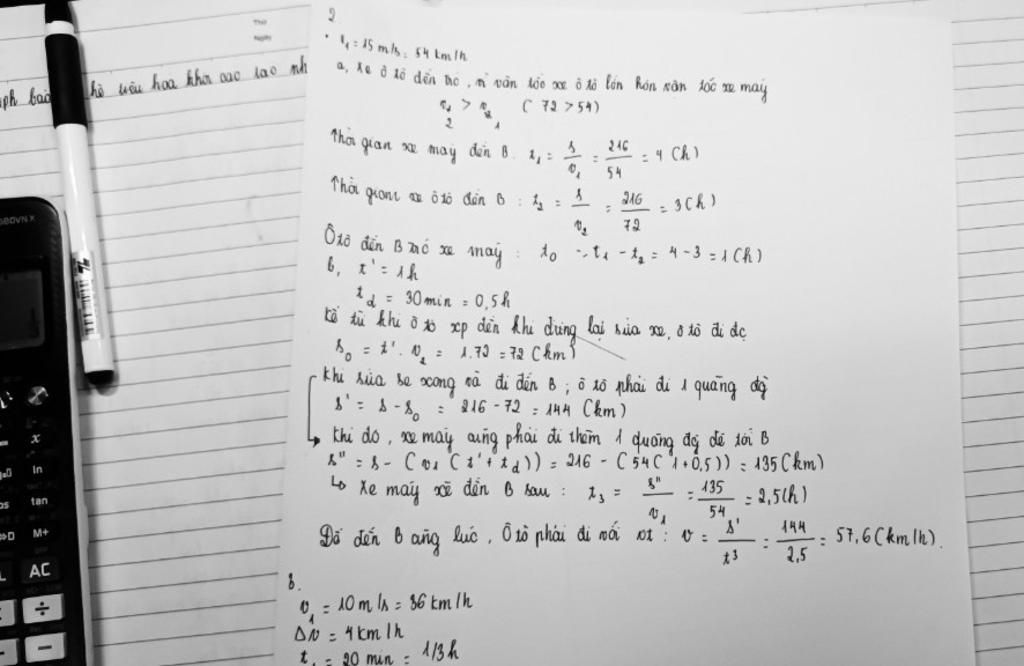 Thứ
Ngày
2
v₁ = 15 m/s = 54 km/h
a, Xe ô tô đến trc, vì vân tôc xe ô tô lớn hơn vân tốc xe máy
v₂ > v₁ ( 72 > 54)
Thời gian xe máy đến B. t₁ = s/v₁ = 216/54 = 4 (h)
Thời gian xe ô tô đến B : t₂ = s/v₂ = 216/72 = 3 (h)
Ôtô đến B trc xe máy : t₀ = t₁ - t₂ = 4 - 3 = 1 (h)
b, t' = 1h
t_d = 30min = 0,5h
kể từ khi ô tô xp đến khi dừng lại sửa xe, ô tô đi đc
s₀ = t'. v₂ = 1.72 = 72 (km)
khi sửa xe xong và đi đến B ; ô tô phải đi 1 quãng đg
s' = s - s₀ = 216 - 72 = 144 (km)
khi đó, xe máy cũng phải đi thêm 1 quãng đg để tới B
s" = s - (v₁ (t' + t_d)) = 216 - (54( 1+0,5)) = 135 (km)
Xe máy sẽ đến B sau : t₃ = s"/v₁ = 135/54 = 2,5(h)
Để đến B cùng lúc, Ô tô phải đi với vt : v = s'/t³ = 144/2,5 = 57,6 (km/h).
3.
v₁ = 10 m/s = 36 km/h
Δv = 4 km/h
t₁ = 20 min = 1/3 h
x
ln
tan
M+
AC
÷
−